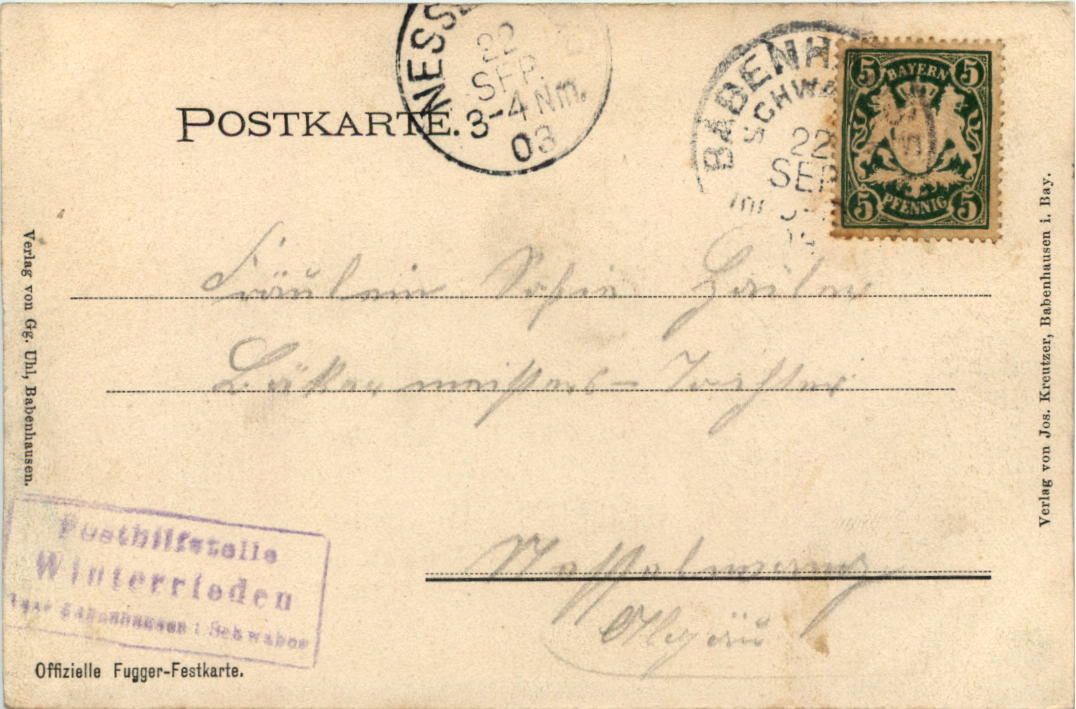 POSTKARTE.
NESS
22
SEP.
3-4 Nm.
03
BABENH
SCHWA
22
SEP
BAYERN
5 5
5 PFENNIG 5
Verlag von Gg. Uhl, Babenhausen.
Verlag von Jos. Kreutzer, Babenhausen i. Bay.
Fräulein Sofie Hailer
Bäkermeisters-Tochter
Nesselwang
Allgäu
Posthilfstelle
Winterrieden
Taxe Babenhausen i Schwaben
Offizielle Fugger-Festkarte.